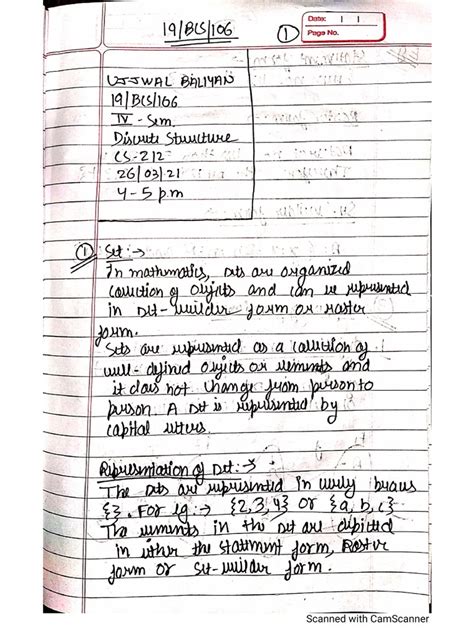 19/BCS/106
1
Date:
Page No.
UJJWAL BALIYAN
19/BCS/106
IV - Sem
Discrete Structure
CS-212
26/03/21
4-5 p.m
① Set :→
In mathematics, sets are organized
collection of objects and can be represented
in set-builder form or roster
form.
Sets are represented as a collection of
well-defined objects or elements and
it does not change from person to
person. A set is represented by
capital letters.
Representation of Set :→
The sets are represented in curly braces
{}. For eg :→ {2,3,4} or {a,b,c}
The elements in the set are depicted
in either the statement form, Roster
form or set-builder form.
Scanned with CamScanner